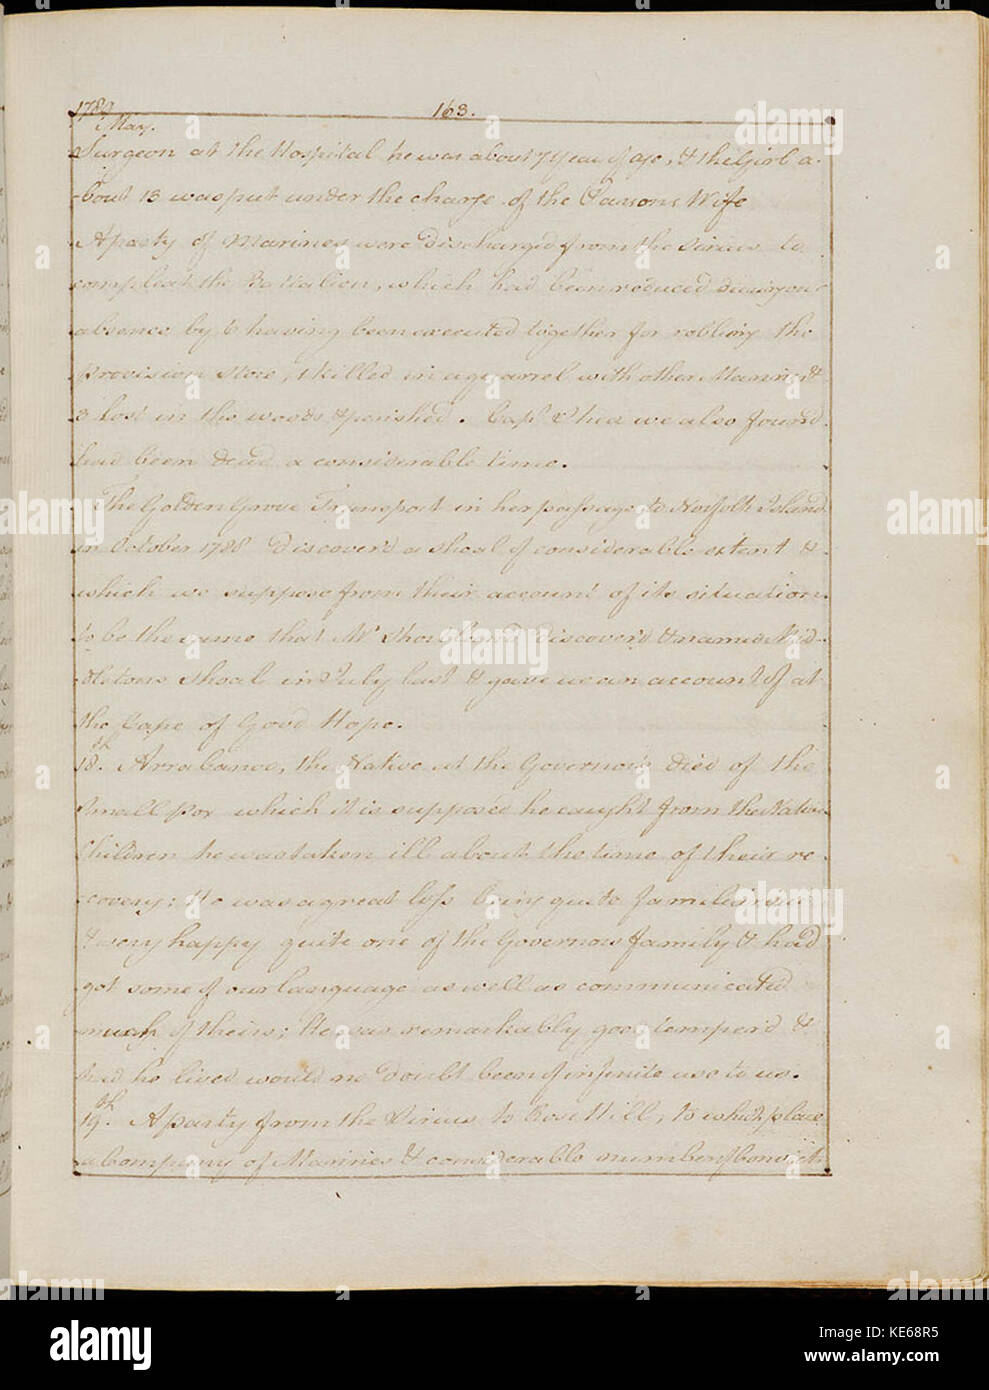 1789
163.
May.
Surgeon at the Hospital he was about 7 Year of age, & the Girl a-
bout 13 was put under the charge of the Parsons Wife
A party of Marines were Discharged from the Sirius to
compleat the Battalion, which had been reduced during our
absence by 6 having been executed together for robbing the
Provision Store, 1 killed in a quarrel with other Marines &
3 lost in the woods & perished. Capt Shea we also found
had been dead a considerable time.
The Golden Grove Transport in her passage to Norfolk Island
in October 1788 Discover'd a shoal of considerable extent &
which we suppose from their account of its situation
to be the same that Mr Shortland discover'd & named Mid-
dletons Shoal in July last & gave us an account of at
the Cape of Good Hope.
18th. Arrabanoo, the Native at the Governor's Died of the
Small Pox which it is suppos'd he caught from the Native
Children he was taken ill about the time of their re-
covery: He was a great loss being quite familiaris'd
& very happy quite one of the Governors family & had
got some of our language as well as communicated
much of theirs; He was remarkably good temper'd &
had he lived would no doubt been of infinite use to us.
19th. A party from the Sirius to Rose Hill, to which place
a Company of Marines & considerable number of Convicts
alamy stock photo
alamy stock photo
alamy
Image ID: KE68R5
www.alamy.com